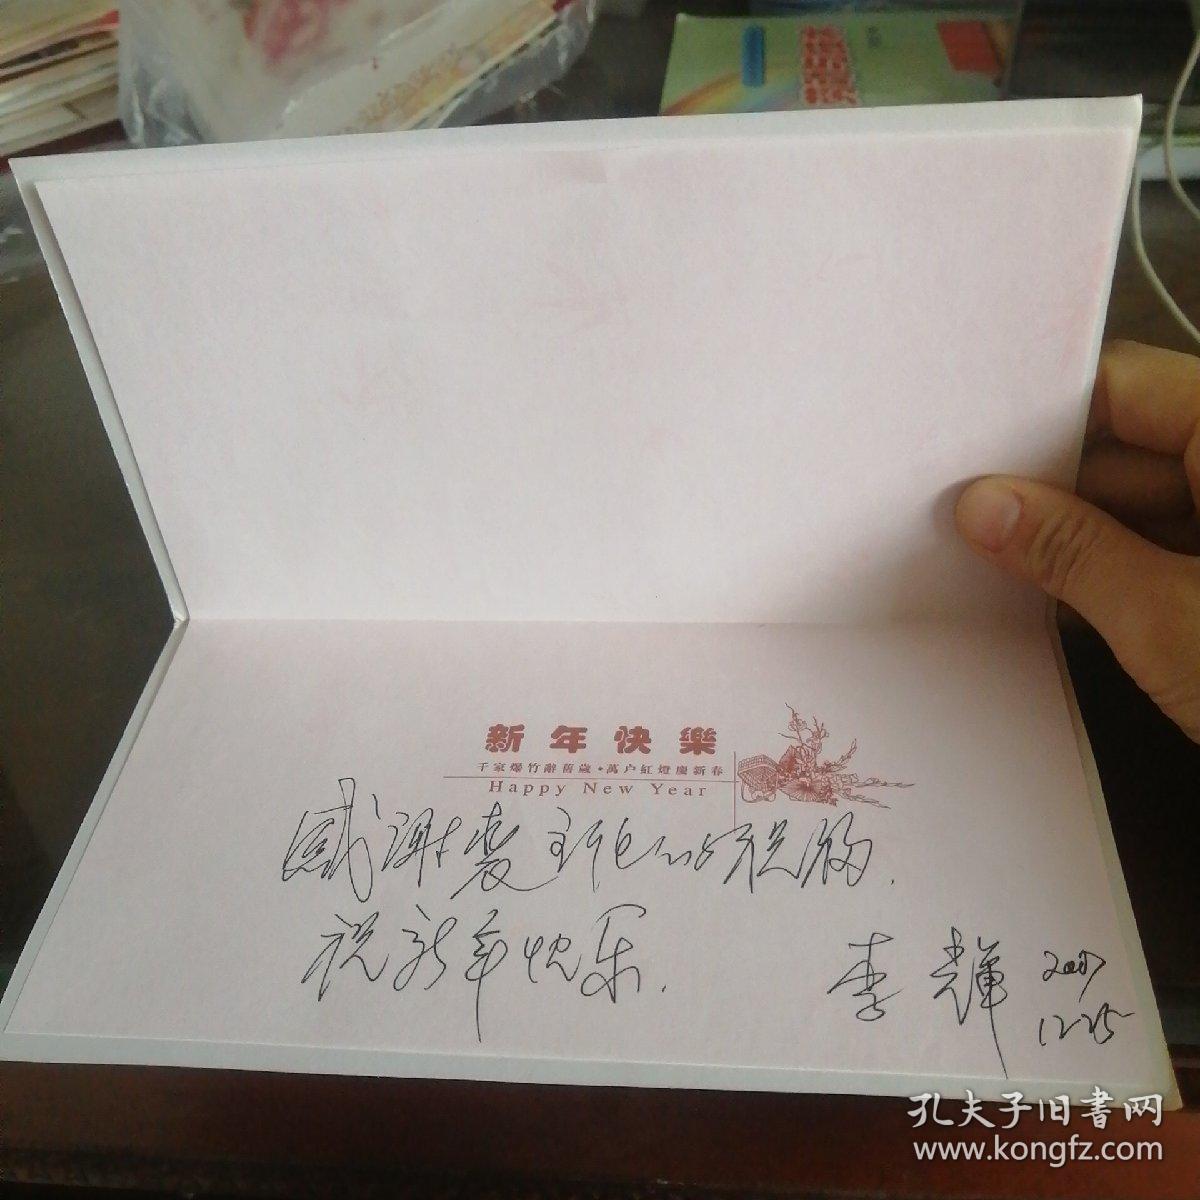 新年快樂
千家爆竹辭舊歲·萬户紅燈慶新春
Happy New Year
感谢袭主任的祝福.
祝新年快乐.
李輝
2007
12.25
孔夫子旧書网
www.kongfz.com